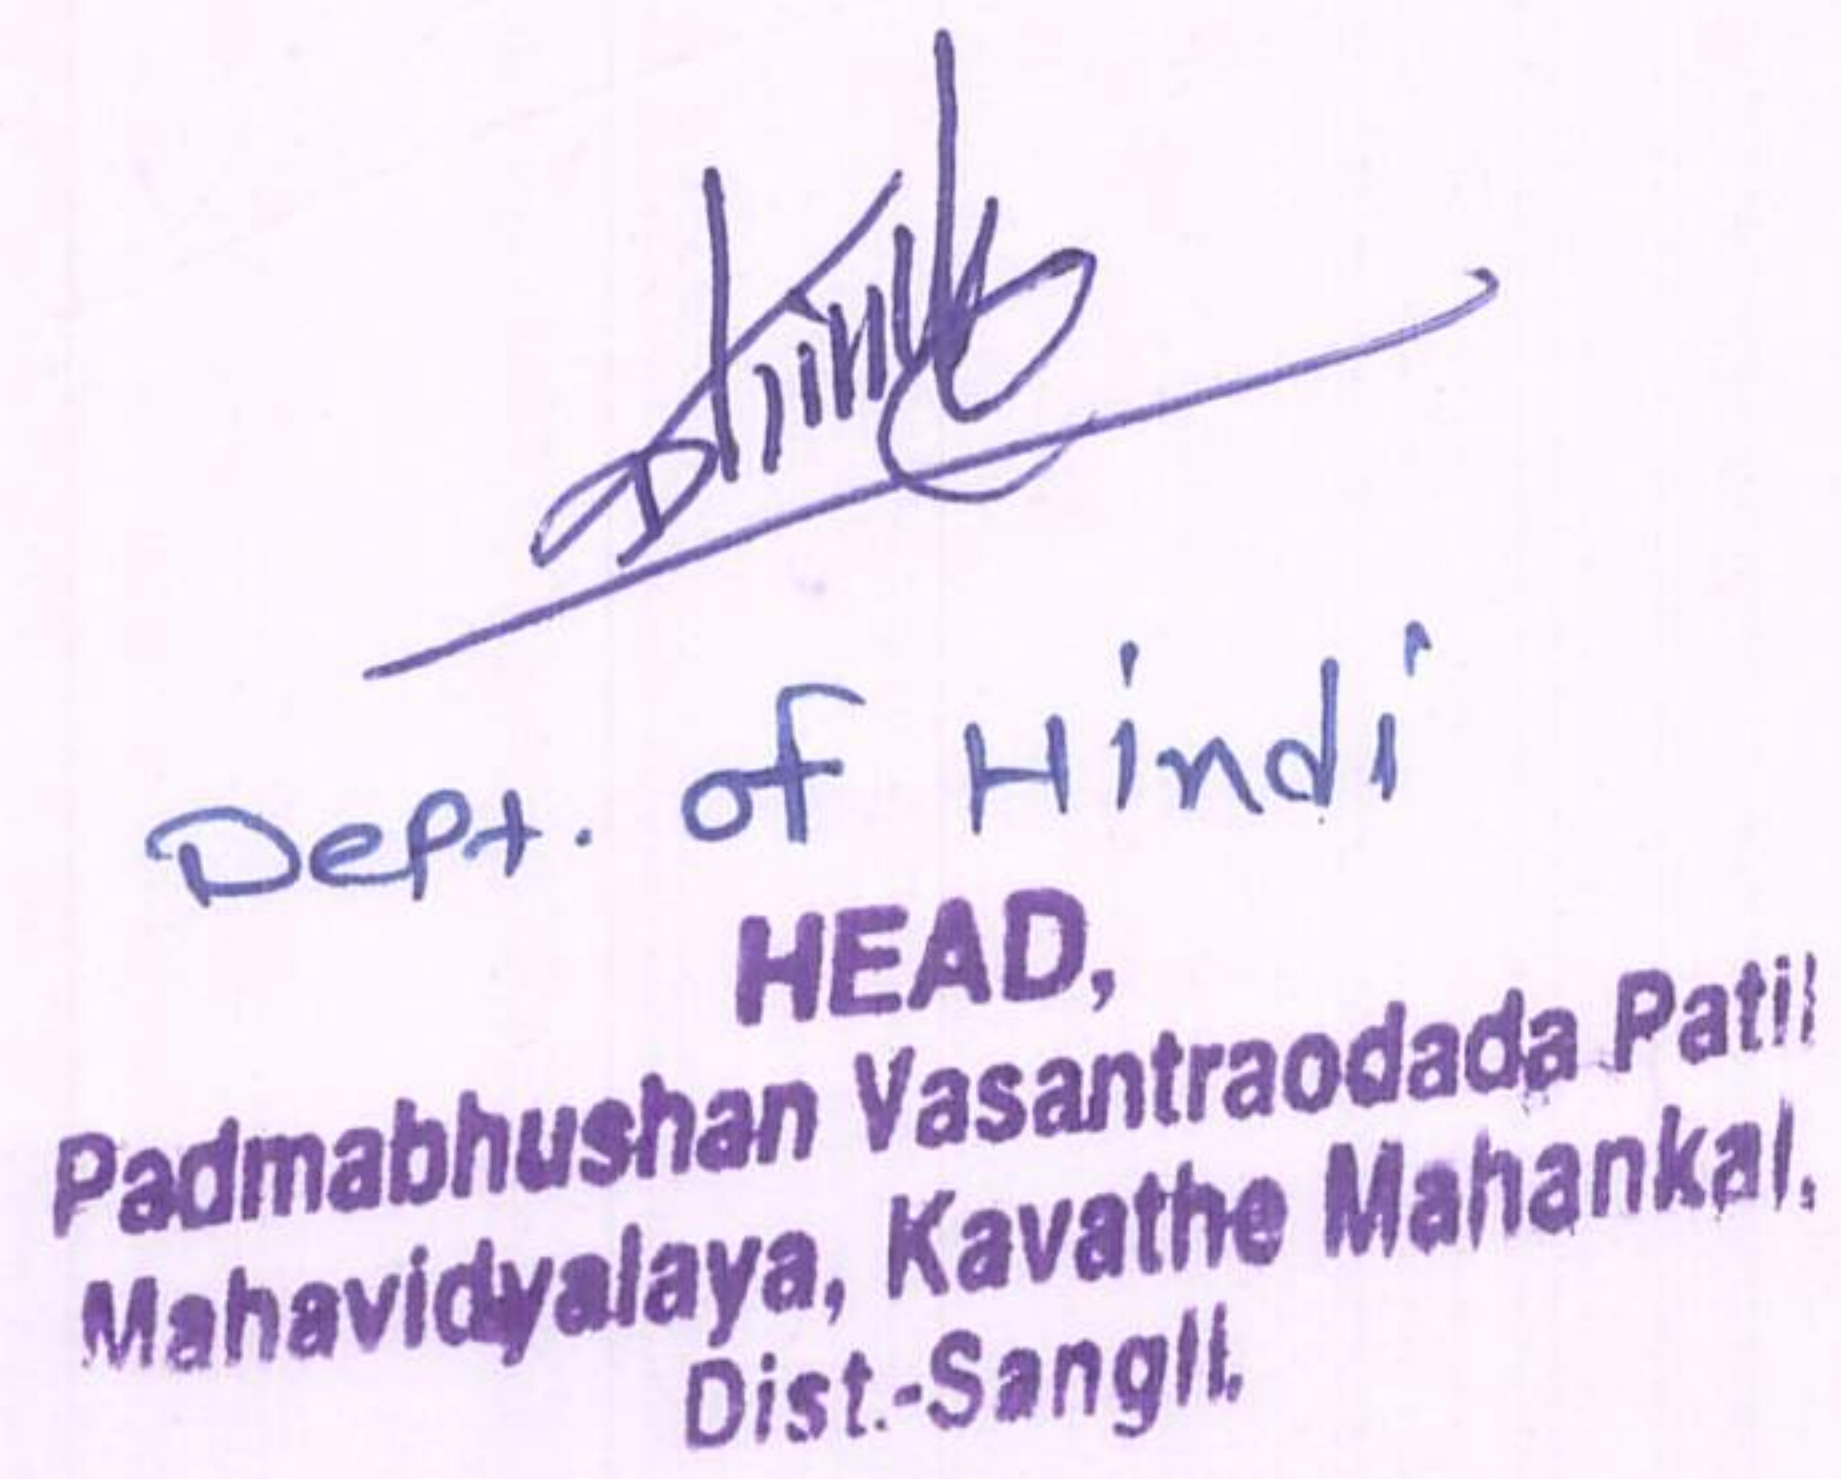 Dept. of Hindi
HEAD,
Padmabhushan Vasantraodada Patil
Mahavidyalaya, Kavathe Mahankal.
Dist.-Sangli.